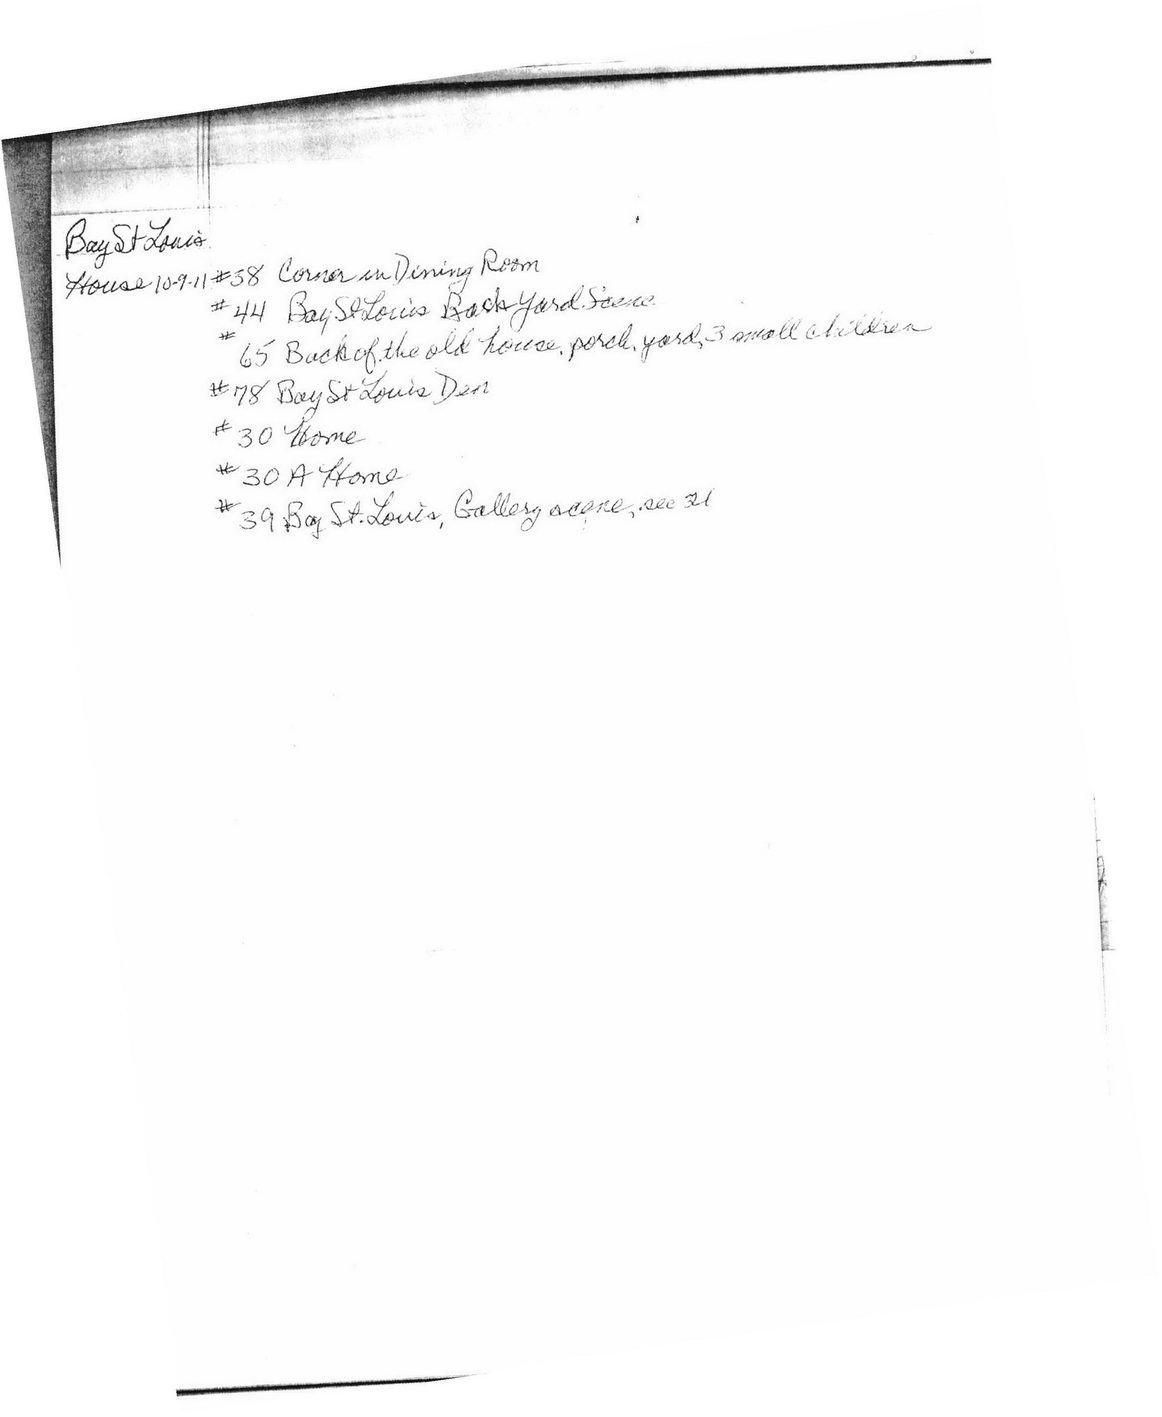 Bay St Louis
House 10-9-11 #38 Corner in Dining Room
#44 Bay St Louis Back Yard Scene
#65 Back of the old house, porch, yard, 3 small children
#78 Bay St Louis Den
#30 Home
#30 A Home
#39 Bay St. Louis, Gallery scene, see